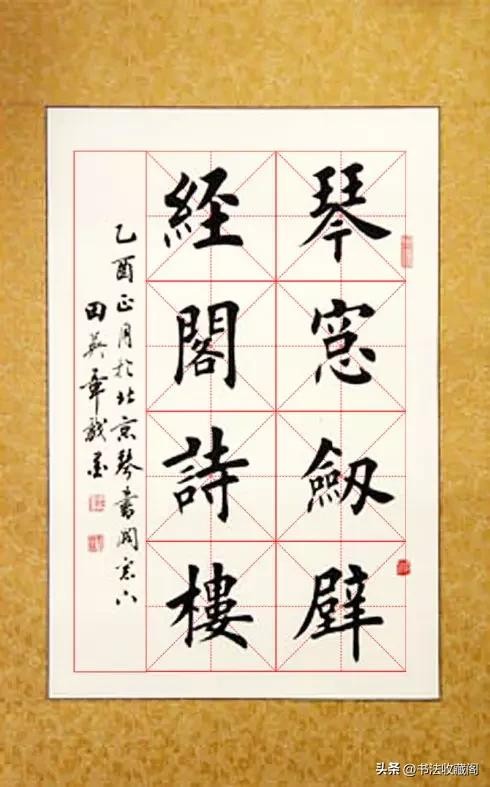 琴窓劔壁
經閣詩樓
乙酉正月於北京琴書閣窓下
田英章戲墨
头条 @书法收藏阁